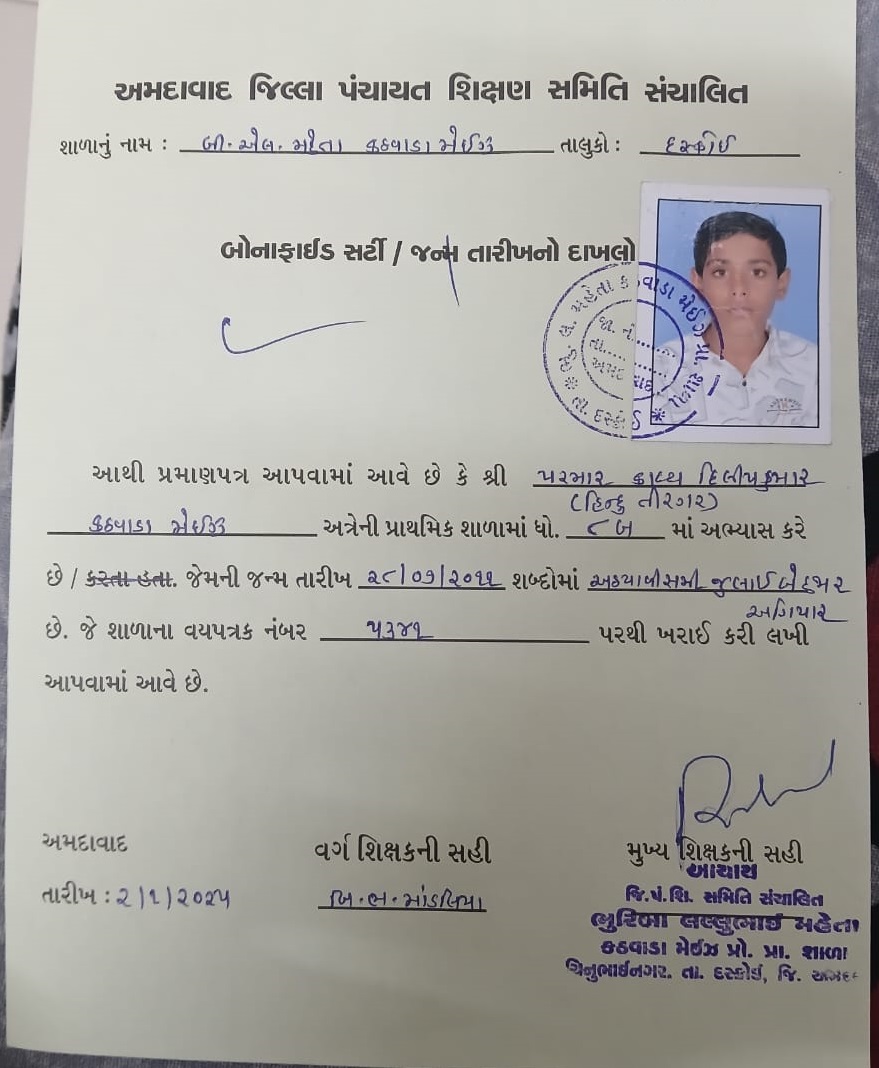 અમદાવાદ જિલ્લા પંચાયત શિક્ષણ સમિતિ સંચાલિત
શાળાનું નામ : બી.એલ. મહેતા કઠવાડા મેઈઝ તાલુકો : દસ્ક્રોઈ
બોનાફાઈડ સર્ટી / જન્મ તારીખનો દાખલો
આથી પ્રમાણપત્ર આપવામાં આવે છે કે શ્રી પરમાર કાવ્ય દિલીપકુમાર
(હિન્દુ તીરગર)
કઠવાડા મેઈઝ અત્રેની પ્રાથમિક શાળામાં ધો. ૮બ માં અભ્યાસ કરે
છે / કરતા હતા. જેમની જન્મ તારીખ ૨૮/૦૭/૨૦૧૧ શબ્દોમાં અઠયાવીસમી જુલાઈ બે હજાર
અગિયાર
છે. જે શાળાના વયપત્રક નંબર ૫૩૪૧ પરથી ખરાઈ કરી લખી
આપવામાં આવે છે.
અમદાવાદ વર્ગ શિક્ષકની સહી મુખ્ય શિક્ષકની સહી
આચાર્ય
તારીખ : ૨/૧/૨૦૨૫
જિ.પં.શિ. સમિતિ સંચાલિત
ભુરિબા લલ્લુભાઈ મહેતા
કઠવાડા મેઈઝ પ્રો. પ્રા. શાળા
ચિનુભાઈનગર. તા. દસ્ક્રોઈ, જિ.